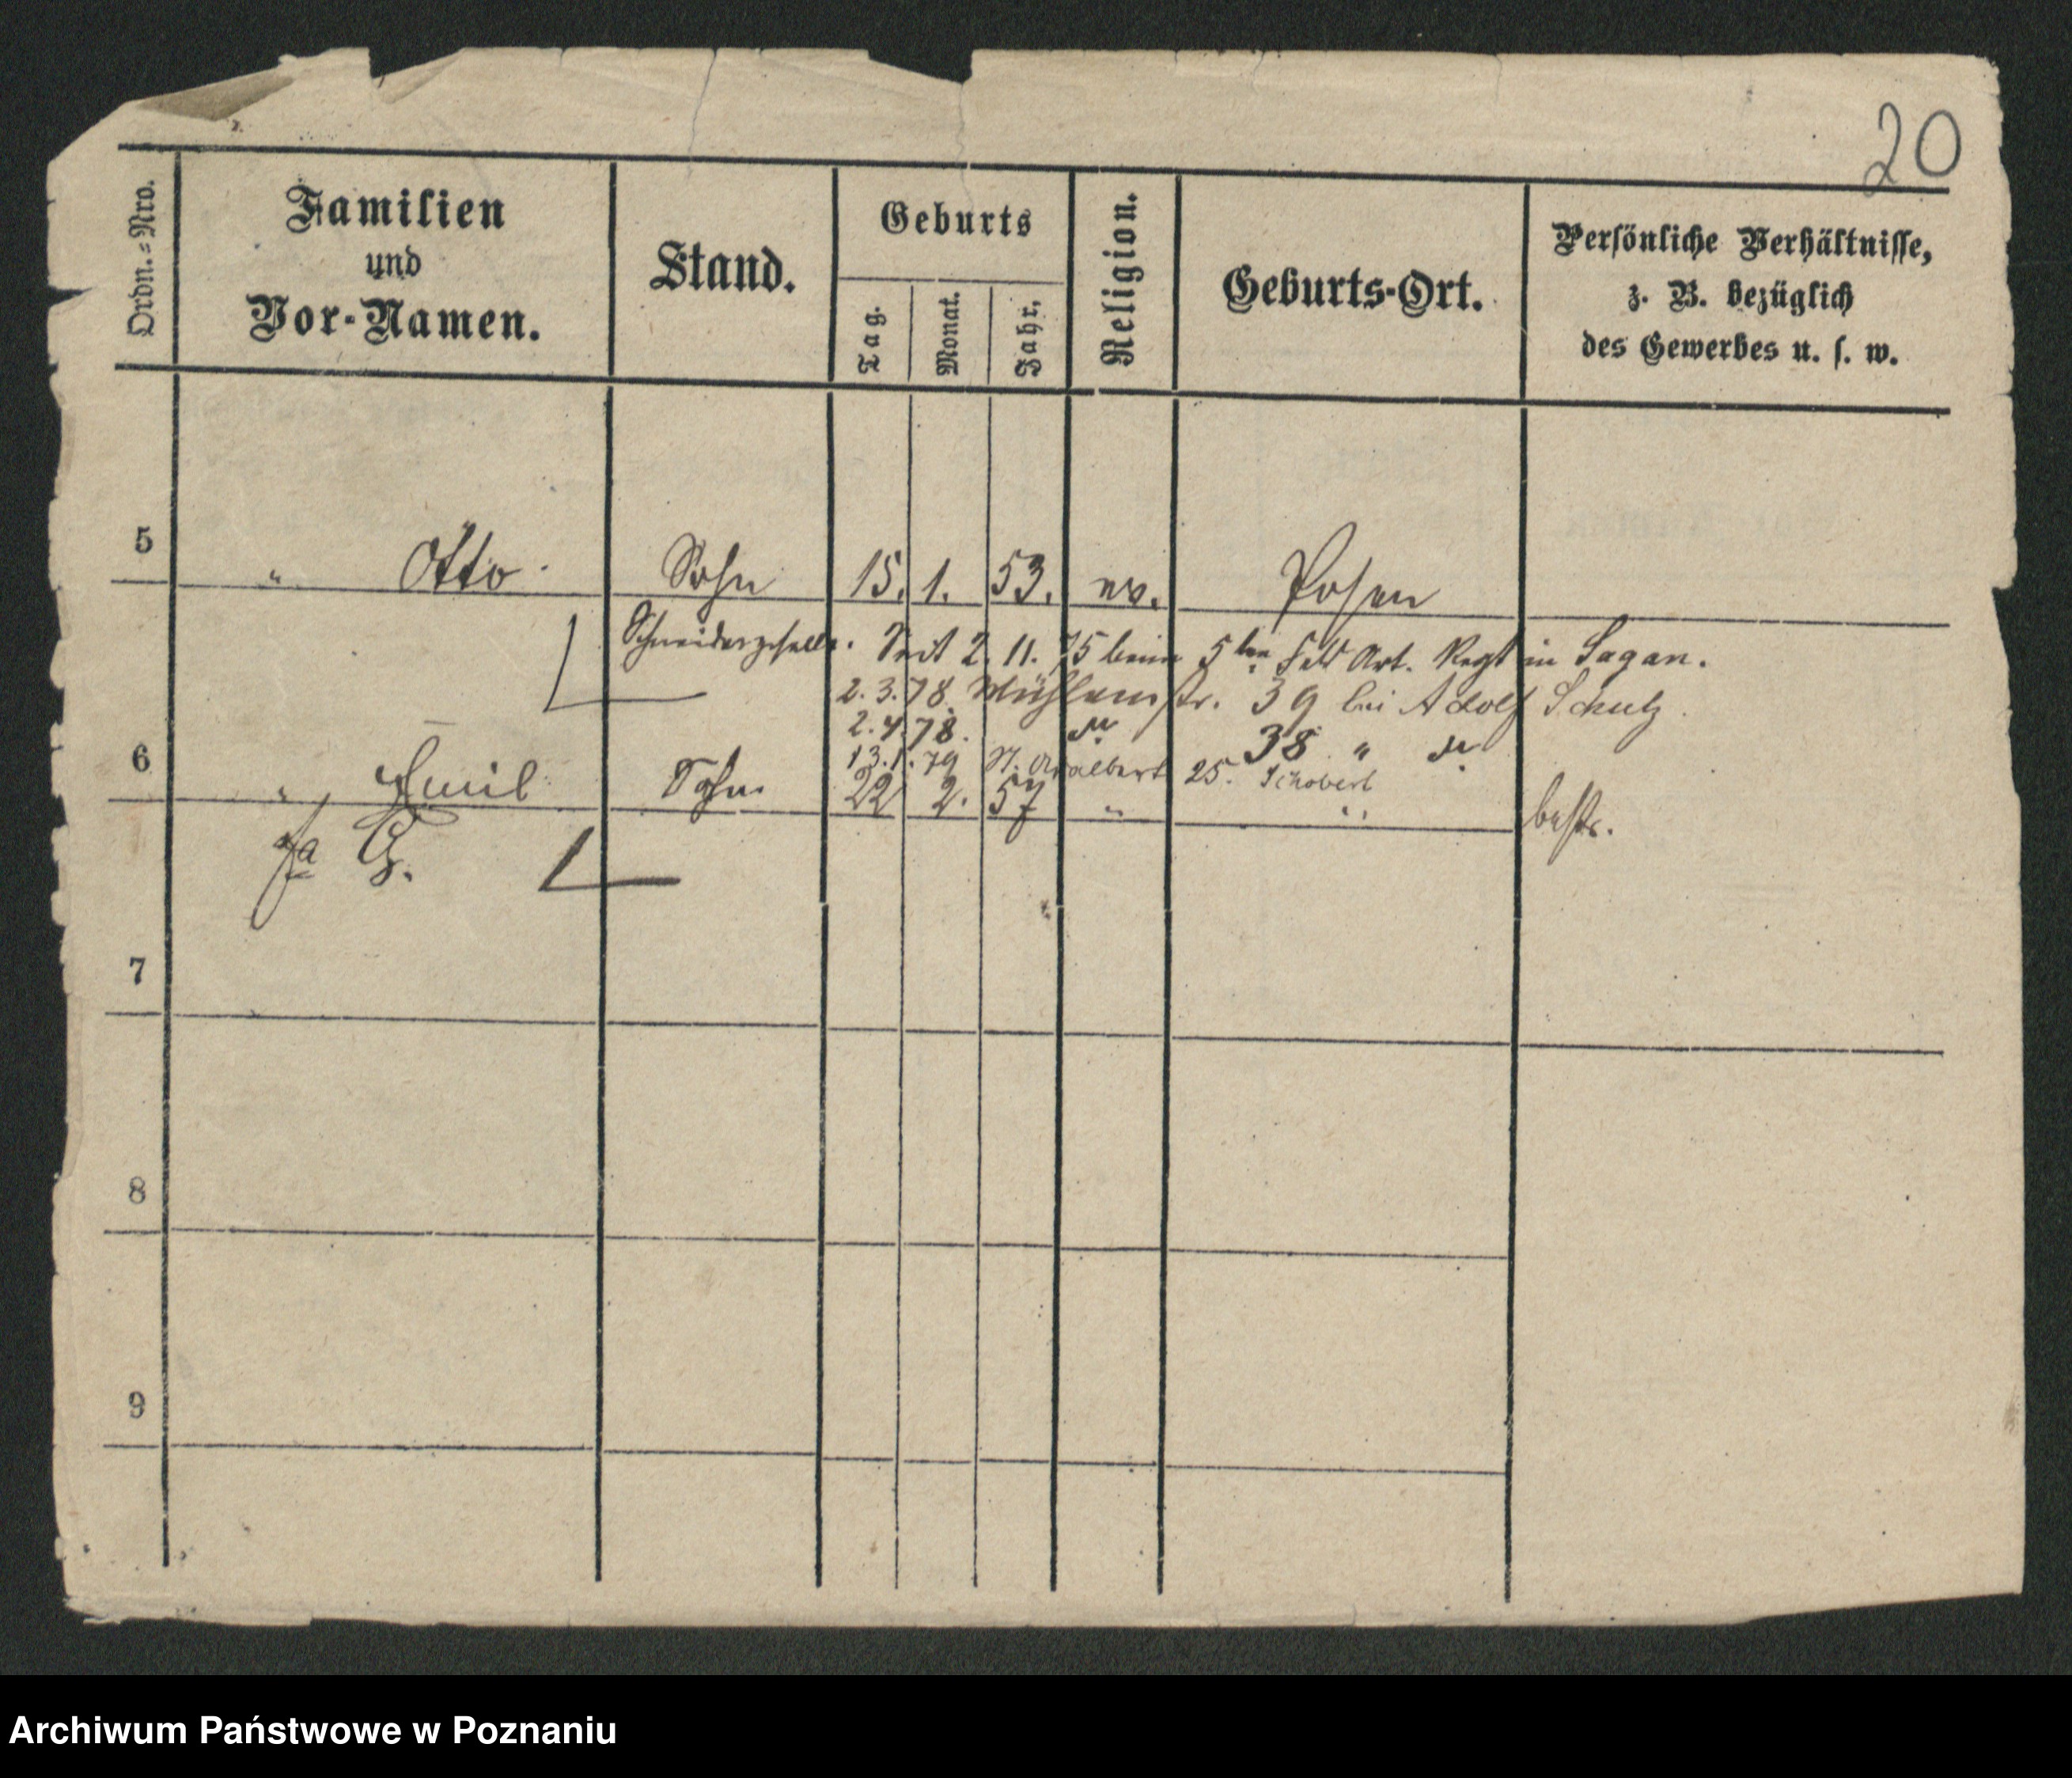 20
Ordn.=Nro.
Familien
und
Vor-Namen.
Stand.
Geburts
Tag.
Monat.
Jahr.
Religion.
Geburts-Ort.
Persönliche Verhältnisse,
z. B. bezüglich
des Gewerbes u. s. w.
5 " Otto Sohn 15. 1. 53. ev. Posen
Schneidergeselle. Seit 2. 11. 75 beim 5ten Feld Art. Regt in Sagan.
2. 3. 78. Mühlenstr. 39 bei Adolf Schulz.
2. 4. 78. 38 "
13. 1. 79 St. Adalbert 25. Schobert
6 " Emil Sohn 22 2. 57 " " bestr.
G.
7
8
9
Archiwum Państwowe w Poznaniu